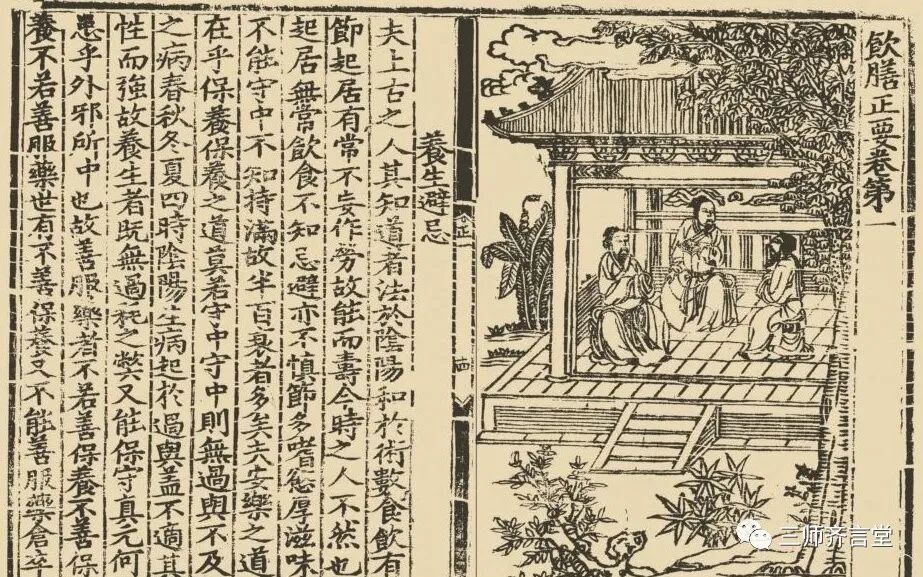 飲膳正要卷第一
養生避忌
夫上古之人其知道者法於陰陽和於術數食飲有
節起居有常不妄作勞故能而壽今時之人不然也
起居無常飲食不知忌避亦不慎節多嗜慾厚滋味
不能守中不知持滿故半百衰者多矣夫安樂之道
在乎保養保養之道莫若守中守中則無過與不及
之病春秋冬夏四時陰陽生病起於過與蓋不適其
性而強故養生者既無過耗之弊又能保守真元何
患乎外邪所中也故善服藥者不若善保養不善保
養不若善服藥世有不善保養又不能善服藥倉卒
正一
四
三师齐言堂